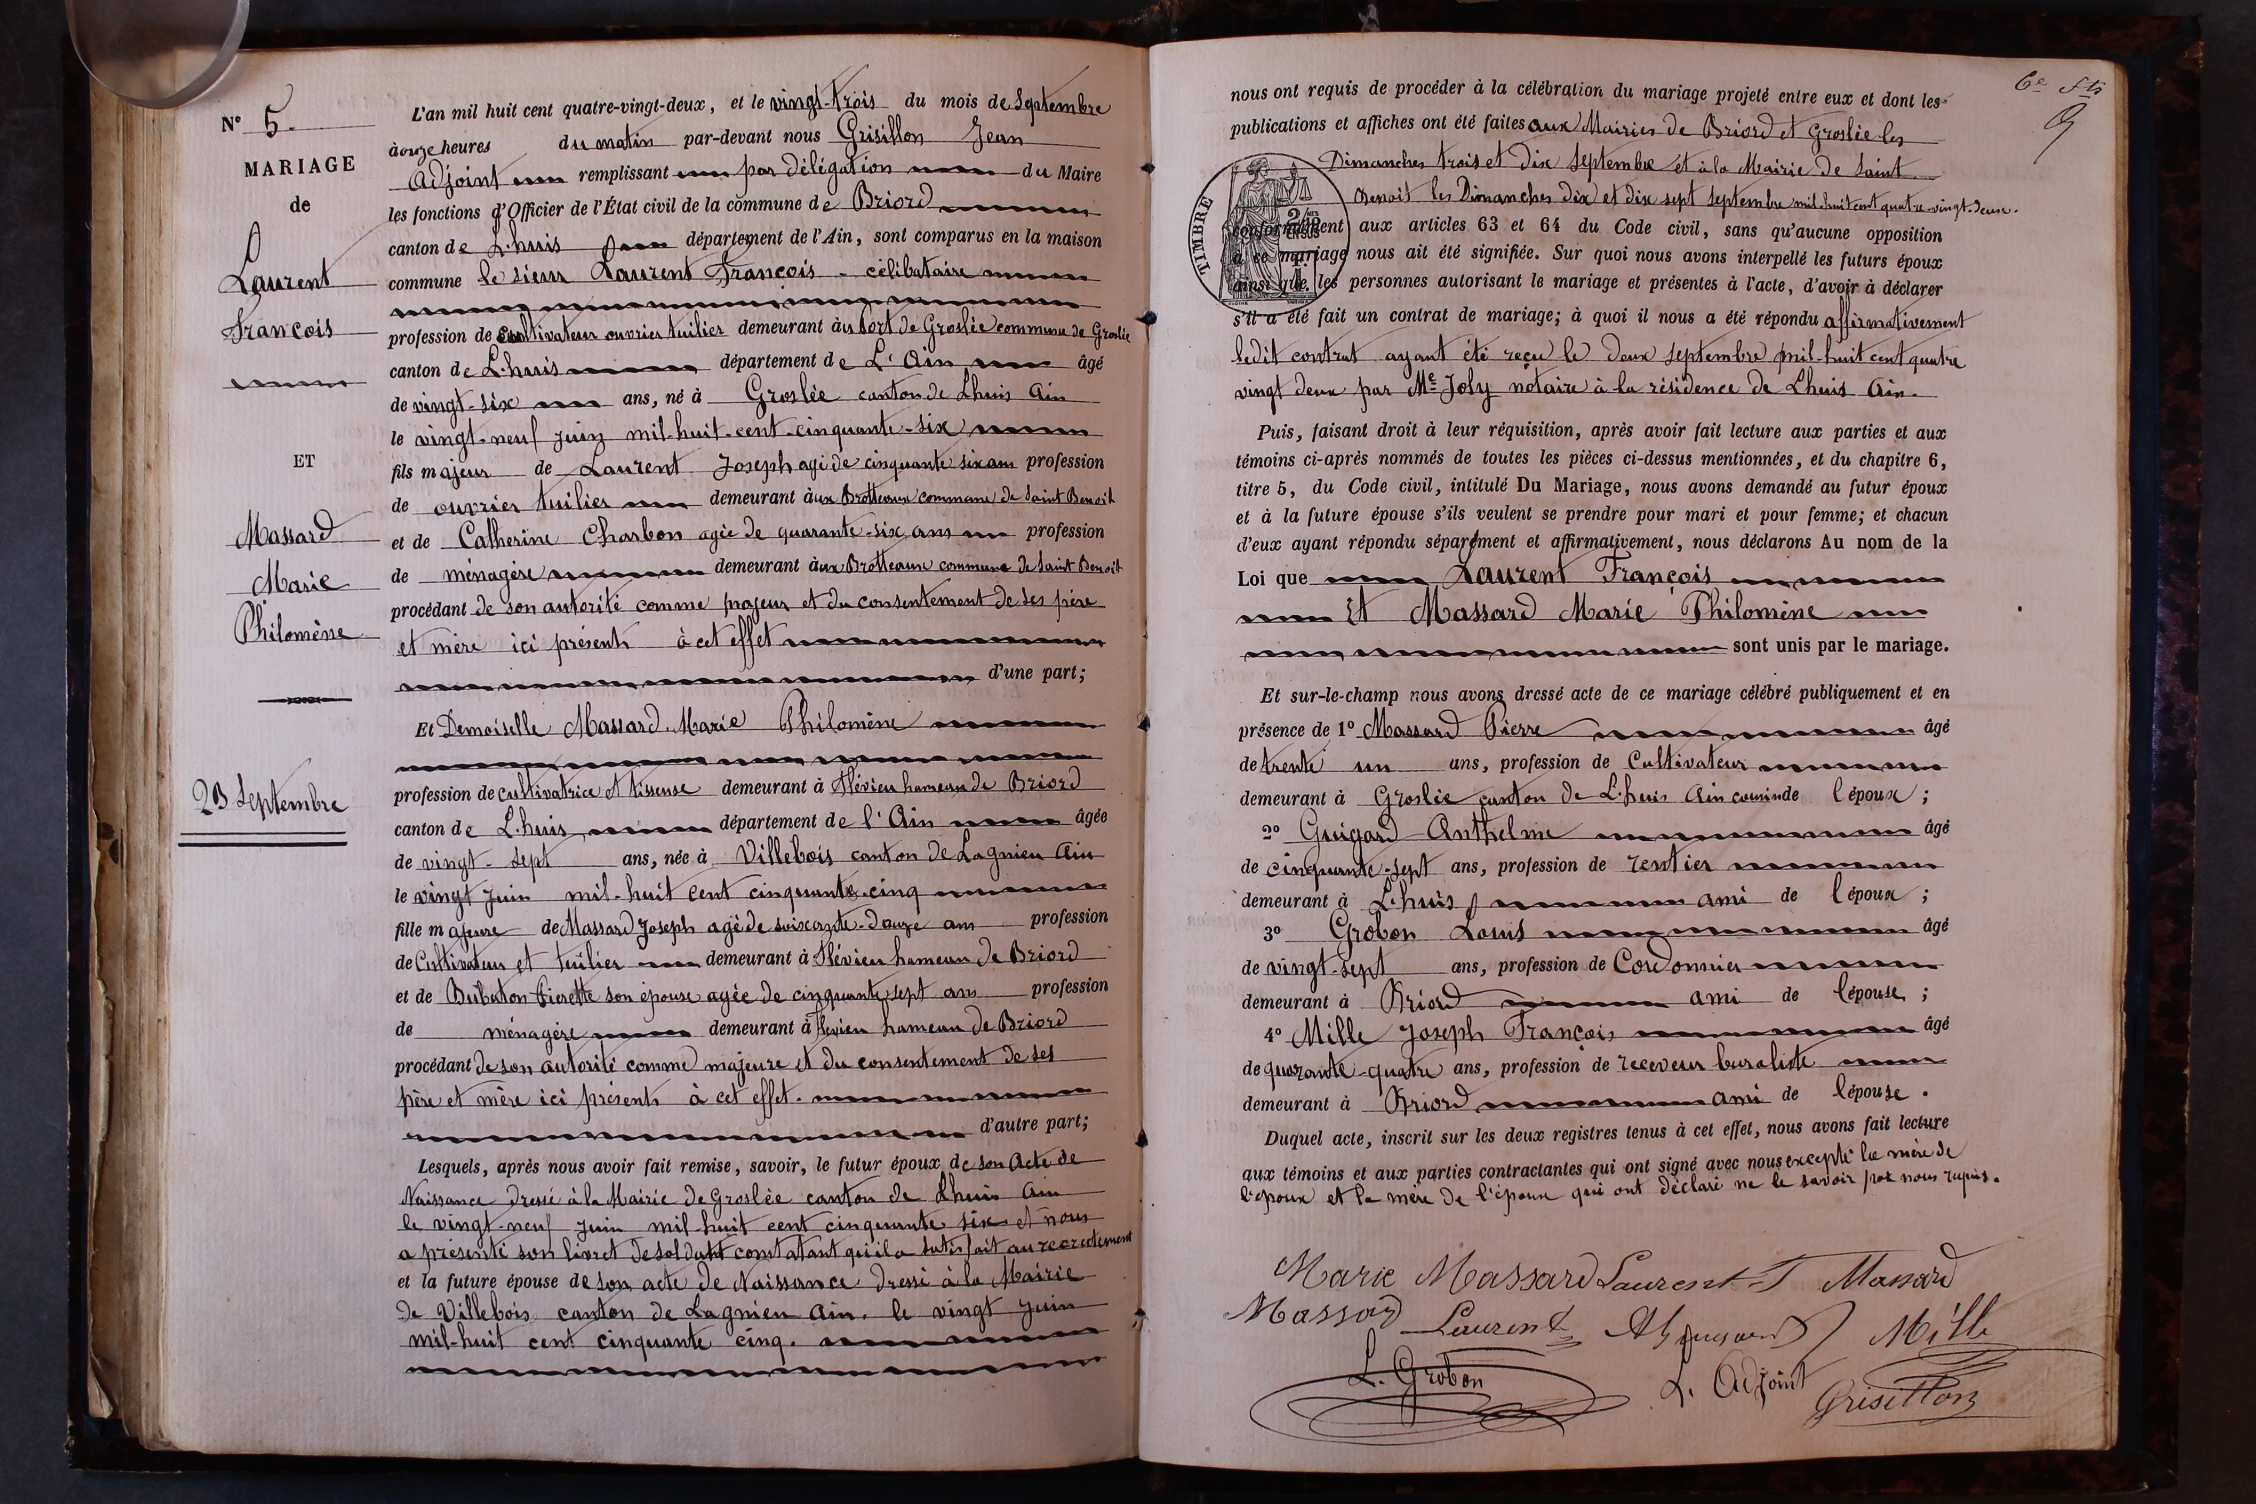 N° 5.
MARIAGE
de
Laurent
François
ET
Massard
Marie
Philomène
23 Septembre
L'an mil huit cent quatre-vingt-deux, et le vingt-trois du mois de Septembre
à onze heures du matin par-devant nous Grisillon Jean
Adjoint remplissant par délégation du Maire
les fonctions d'Officier de l'État civil de la commune de Briord
canton de L.huis département de l'Ain, sont comparus en la maison
commune le sieur Laurent François - célibataire
profession de cultivateur ouvrier tuilier demeurant au Port de Groslée commune de Groslée
canton de L.huis département de L'Ain âgé
de vingt-six ans, né à Groslée canton de Lhuis Ain
le vingt-neuf juin mil-huit-cent-cinquante-six
fils majeur de Laurent Joseph agé de cinquante six ans profession
de ouvrier tuilier demeurant aux Brotteaux commune de Saint Benoit
et de Catherine Charbon agée de quarante-six ans profession
de ménagère demeurant aux Brotteaux commune de Saint Benoit
procédant de son autorité comme majeur et du consentement de ses père
et mère ici présents à cet effet
d'une part;
Et Demoiselle Massard Marie Philomène
profession de cultivatrice et tisseuse demeurant à Flévieu hameau de Briord
canton de L.huis département de l'Ain âgée
de vingt-sept ans, née à Villebois canton de Lagnieu Ain
le vingt juin mil-huit cent cinquante-cinq
fille majeure de Massard Joseph agé de soixante-douze ans profession
de Cultivateur et tuilier demeurant à Flévieu hameau de Briord
et de Pierette son épouse agée de cinquante sept ans profession
de ménagère demeurant à Flevieu hameau de Briord
procédant de son autorité comme majeure et du consentement de ses
père et mère ici présents à cet effet.
d'autre part;
Lesquels, après nous avoir fait remise, savoir, le futur époux de son Acte de
Naissance dressé à la Mairie de Groslée canton de Lhuis Ain
le vingt-neuf juin mil-huit cent cinquante six et nous
a présenté son livret de soldat constatant qu'il a satisfait au recrutement
et la future épouse de son acte de Naissance dressé à la Mairie
de Villebois canton de Lagnieu Ain. le vingt juin
mil-huit cent cinquante cinq.
9
nous ont requis de procéder à la célébration du mariage projeté entre eux et dont les
publications et affiches ont été faites aux Mairies de Briord et Groslée les
Dimanches trois et dix septembre et à la Mairie de Saint
Benoit les Dimanches dix et dix sept septembre mil huit cent quatre-vingt-deux.
TIMBRE
conformément aux articles 63 et 64 du Code civil, sans qu'aucune opposition
à ce mariage nous ait été signifiée. Sur quoi nous avons interpellé les futurs époux
ainsi que les personnes autorisant le mariage et présentes à l'acte, d'avoir à déclarer
s'il a été fait un contrat de mariage; à quoi il nous a été répondu affirmativement
ledit contrat ayant été reçu le deux septembre mil-huit cent quatre
vingt deux par Me Joly notaire à la résidence de Lhuis Ain.
Puis, faisant droit à leur réquisition, après avoir fait lecture aux parties et aux
témoins ci-après nommés de toutes les pièces ci-dessus mentionnées, et du chapitre 6,
titre 5, du Code civil, intitulé Du Mariage, nous avons demandé au futur époux
et à la future épouse s'ils veulent se prendre pour mari et pour femme; et chacun
d'eux ayant répondu séparément et affirmativement, nous déclarons Au nom de la
Loi que Laurent François
Et Massard Marie Philomène
sont unis par le mariage.
Et sur-le-champ nous avons dressé acte de ce mariage célébré publiquement et en
présence de 1° Massard Pierre âgé
de trente un ans, profession de Cultivateur
demeurant à Groslée canton de L.huis Ain cousin de l'époux;
2° Guigard Anthelme âgé
de cinquante-sept ans, profession de rentier
demeurant à L.huis ami de l'époux;
3° Grobon Louis âgé
de vingt-sept ans, profession de Cordonnier
demeurant à Briord ami de l'épouse;
4° Mille Joseph François âgé
de quarante-quatre ans, profession de receveur buraliste
demeurant à Briord ami de l'épouse.
Duquel acte, inscrit sur les deux registres tenus à cet effet, nous avons fait lecture
aux témoins et aux parties contractantes qui ont signé avec nous excepté la mère de
l'époux et la mère de l'épouse qui ont déclaré ne le savoir par nous requis.
Marie Massard Laurent F Massard
Massard Laurent Mille
L. Grobon L. Adjoint Grisillon